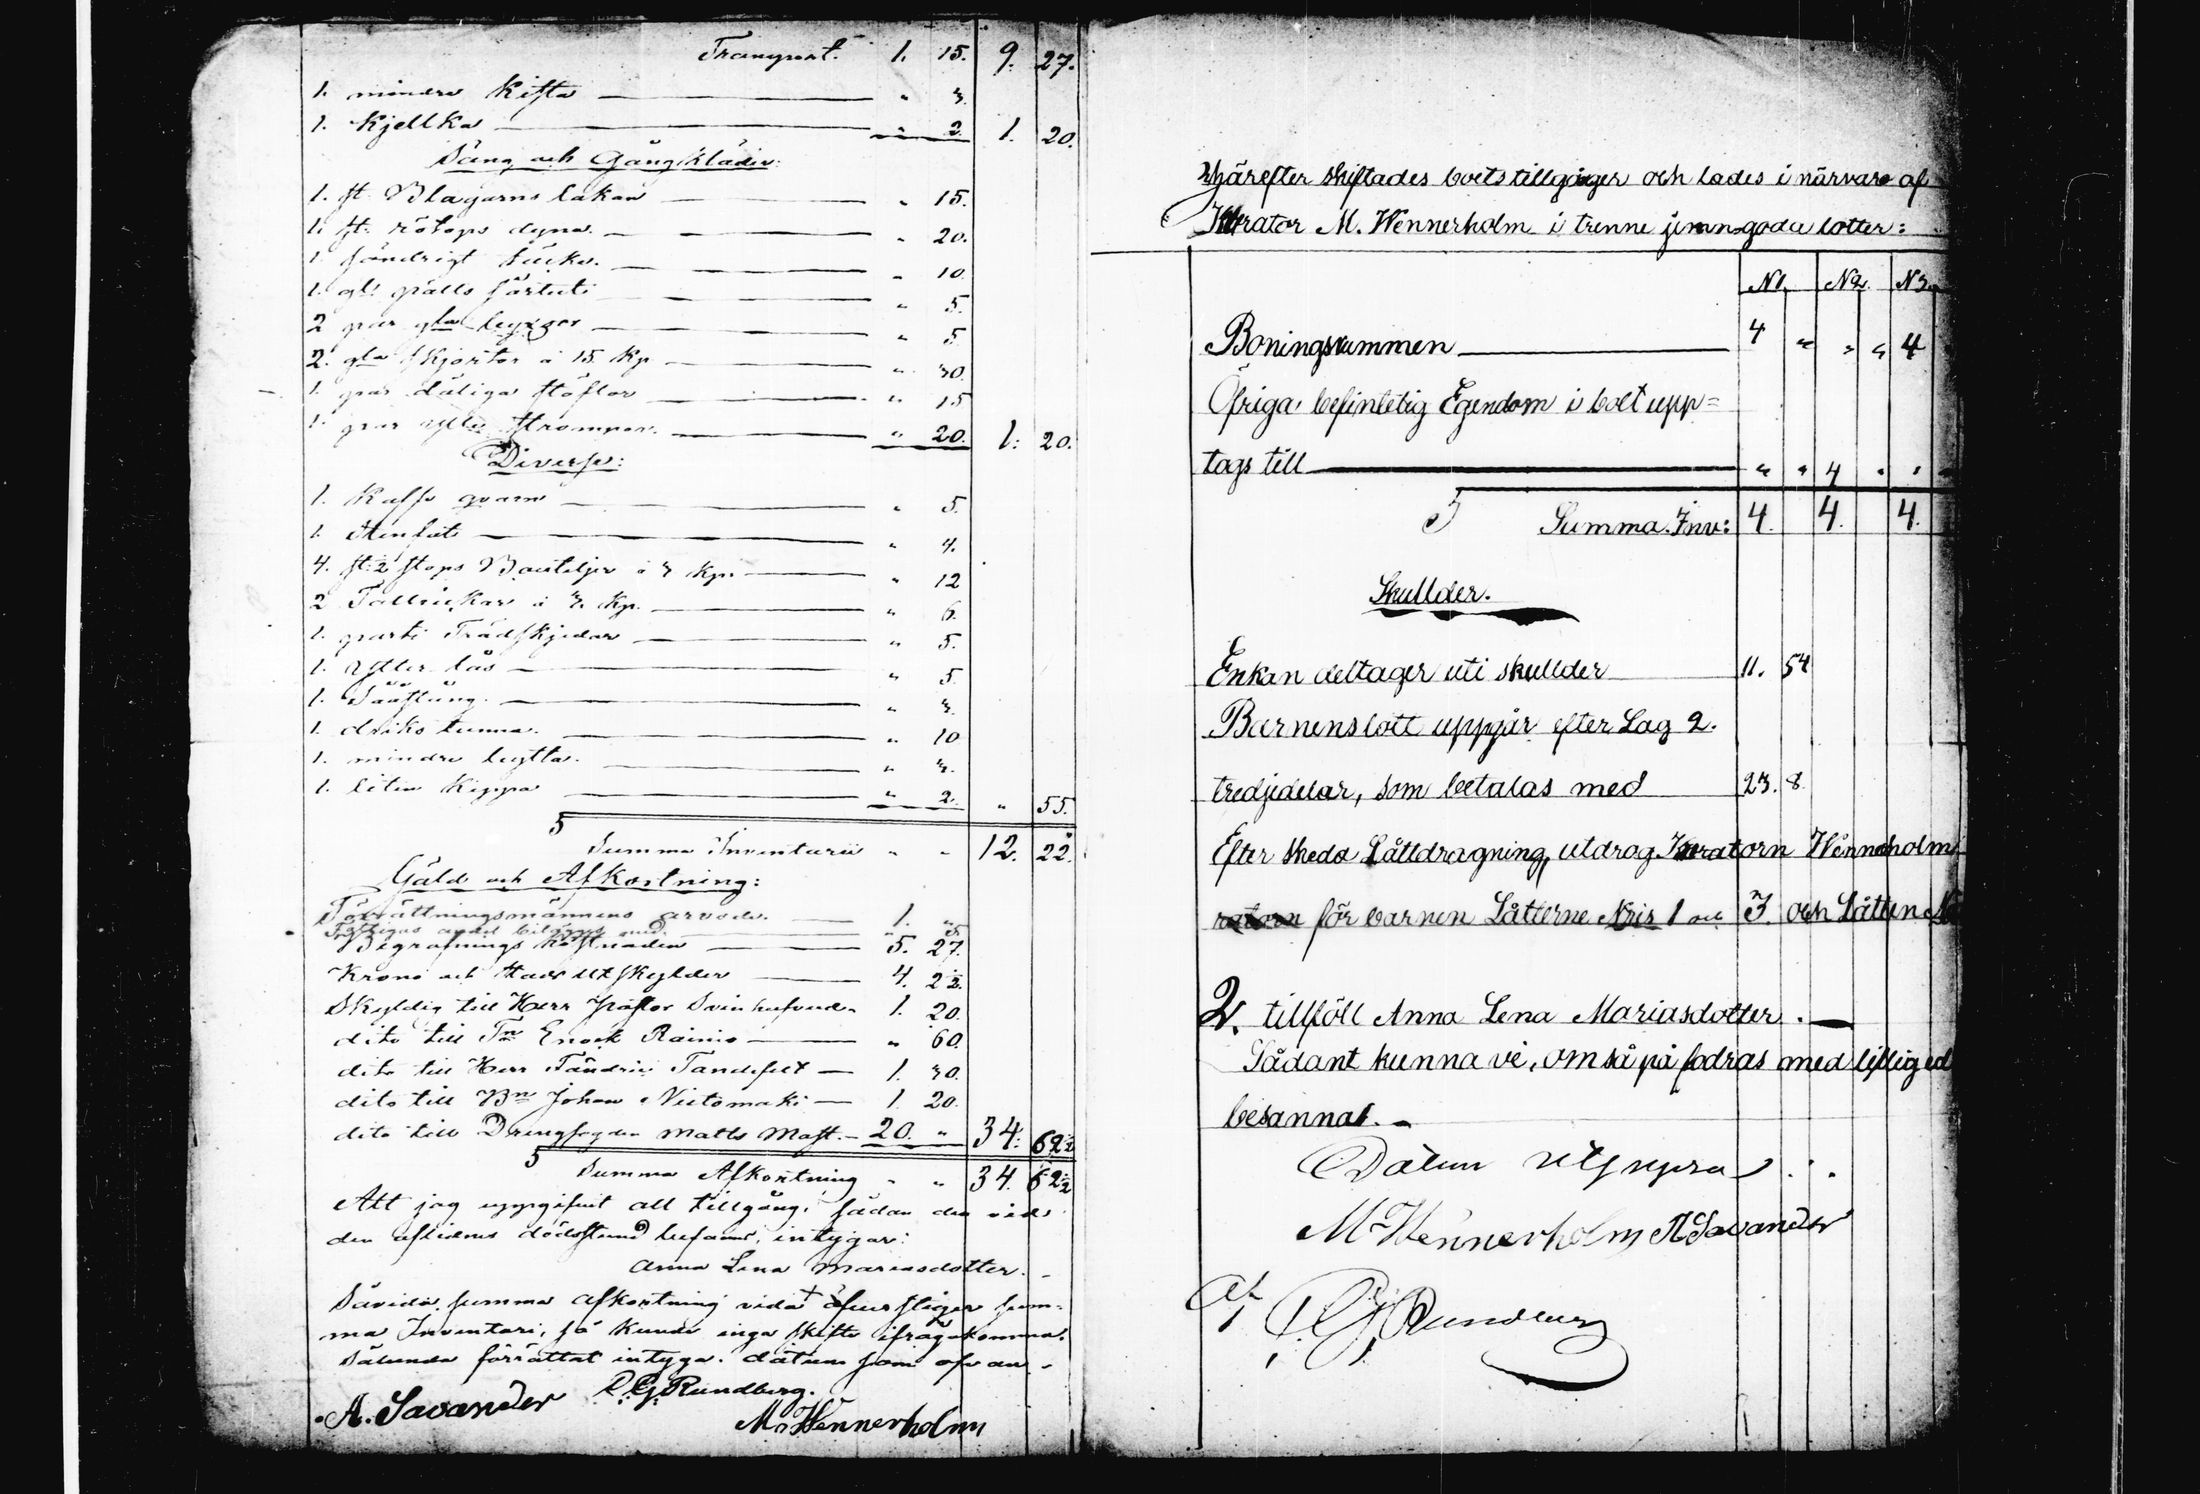 Transport. 1. 15. 9. 27.
1. mindre Kista " 3.
1. Kjellka " 2. 1. 20.
Säng och Gångkläder:
1. st. Blagarns lakan " 15.
1. st. dyna. " 20.
1. söndrigt täcke. " 10.
1. 5.
2 par gla byxor " 5.
2. gla skjortor à 15 Kp " 30.
1. par dåliga stöflor " 15
1. par strumpor. " 20. 1: 20.
Diverse:
1. Kaffe qvarn " 5.
1. Stenfat " 4.
4. st: 2 stops Bouteljer à 3 Kpr " 12
2 Tallrickar à 3. Kp. " 6.
1. parti Trädskjedar " 5.
1. lås " 5.
1. Såstång. " 3.
1. driks tunna. " 10
1. mindre bytta. " 3.
1. liten Kippa " 2. " 55.
Summa Inventarii " " 12. 22.
Gäld och Afkortning:
Förrättningsmännens arvode. 1. "
Fattigas andel
Begrafnings Kostnaden 5. 27.
Krono och Stads utskylder 4. 2½.
Skyldig till Herr Pastor Svinhufvud 1. 20.
dito till Enock Rainio " 60.
dito till Herr Fändrik Tandefelt 1. 30.
dito till Bn Johan Niitomäki 1. 20.
dito till Drengfogden Matts Mast. 20. " 34: 62½
Summa Afkortning " " 34. 62½
Att jag uppgifvit all tillgång, sådan den vid
den aflidnes dödsstund befans, intygar:
Anna Lena Mariasdotter.
Såvida summa afkortning vida öfverstiger sum-
ma Inventari, så kunde inga skifte ifrågakomma.
Sålunda förrättat intyga. datum som ofvan.
A. Savander C. G. Rundberg.
M. Wennerholm
Härefter skiftades boets tillgånger och lades i närvaro af
Kurator M. Wennerholm i trenne jemngoda lotter:
N1. N2. N3.
Boningsrummen 4 " " " 4
Öfriga befinletig Egendom i boet upp=
tags till " " 4 " "
Summa Inv: 4. 4. 4.
Skullder.
Enkan deltager uti skullder 11. 54
Barnens lott uppgår efter Lag 2.
tredjedelar, som betalas med 23. 8.
Efter skedd Låttdragning, utdrog Kuratorn Wennerholm
för barnen Låtterne Nris 1 och 3. och Låtten N
2. tillföll Anna Lena Mariasdotter.
Sådant kunna vi, om så på fodras med liflig ed
besannat.
Datum utsupra
M. Wennerholm A Savander
C G Rundberg